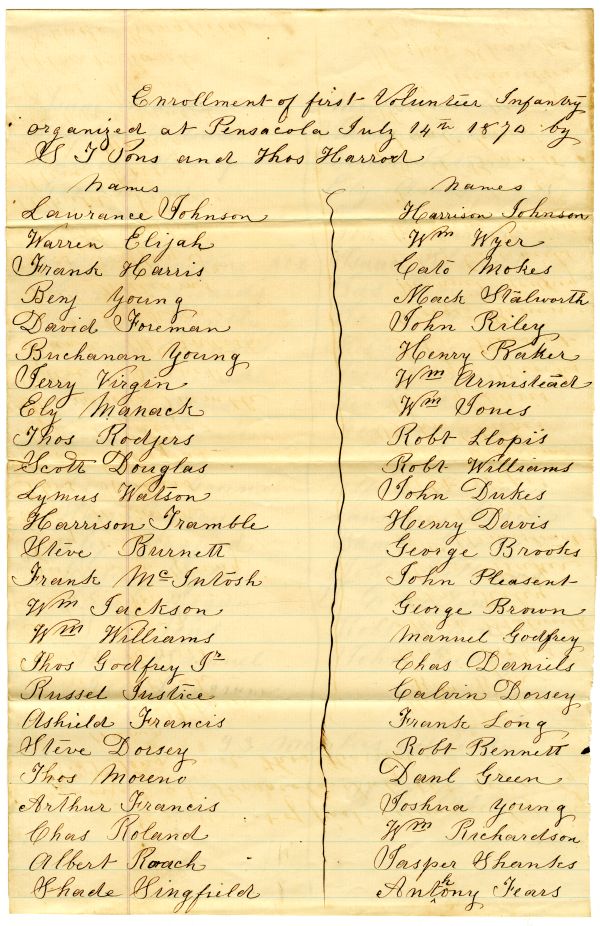 Enrollment of first Volunteer Infantry
organized at Pensacola July 14th 1870 by
S T Pons and Thos Harrod
Names
Lawrance Johnson
Warren Elijah
Frank Harris
Benj Young
David Foreman
Buchanan Young
Jerry Virgin
Ely Manack
Thos Rodjers
Scott Douglas
Lymus Watson
Harrison Tramble
Steve Burnett
Frank McIntosh
Wm Jackson
Wm Williams
Thos Godfrey Jr
Russel Justice
Ashield Francis
Steve Dorsey
Thos Moreno
Arthur Francis
Chas Roland
Albert Roach
Shade Singfield
Names
Harrison Johnson
Wm Wyer
Cato Mokes
Mack Stalworth
John Riley
Henry Baker
Wm Armistead
Wm Jones
Robt Llopis
Robt Williams
John Dukes
Henry Davis
George Brooks
John Pleasent
George Brown
Manuel Godfrey
Chas Daniels
Calvin Dorsey
Frank Long
Robt Bennett
Danl Green
Joshua Young
Wm Richardson
Jasper Shanks
Anthony Fears